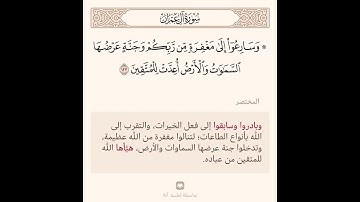 سُورَةُ آلِ عِمۡرَانَ
۞ وَسَارِعُوٓاْ إِلَىٰ مَغۡفِرَةٖ مِّن رَّبِّكُمۡ وَجَنَّةٍ عَرۡضُهَا
ٱلسَّمَٰوَٰتُ وَٱلۡأَرۡضُ أُعِدَّتۡ لِلۡمُتَّقِينَ ١٣٣
المختصر
وبادروا وسابقوا إلى فعل الخيرات، والتقرب إلى
الله بأنواع الطاعات؛ لتنالوا مغفرة من الله عظيمة،
وتدخلوا جنة عرضها السماوات والأرض، هيَّأها الله
للمتقين من عباده.
بواسطة تطبيق آية